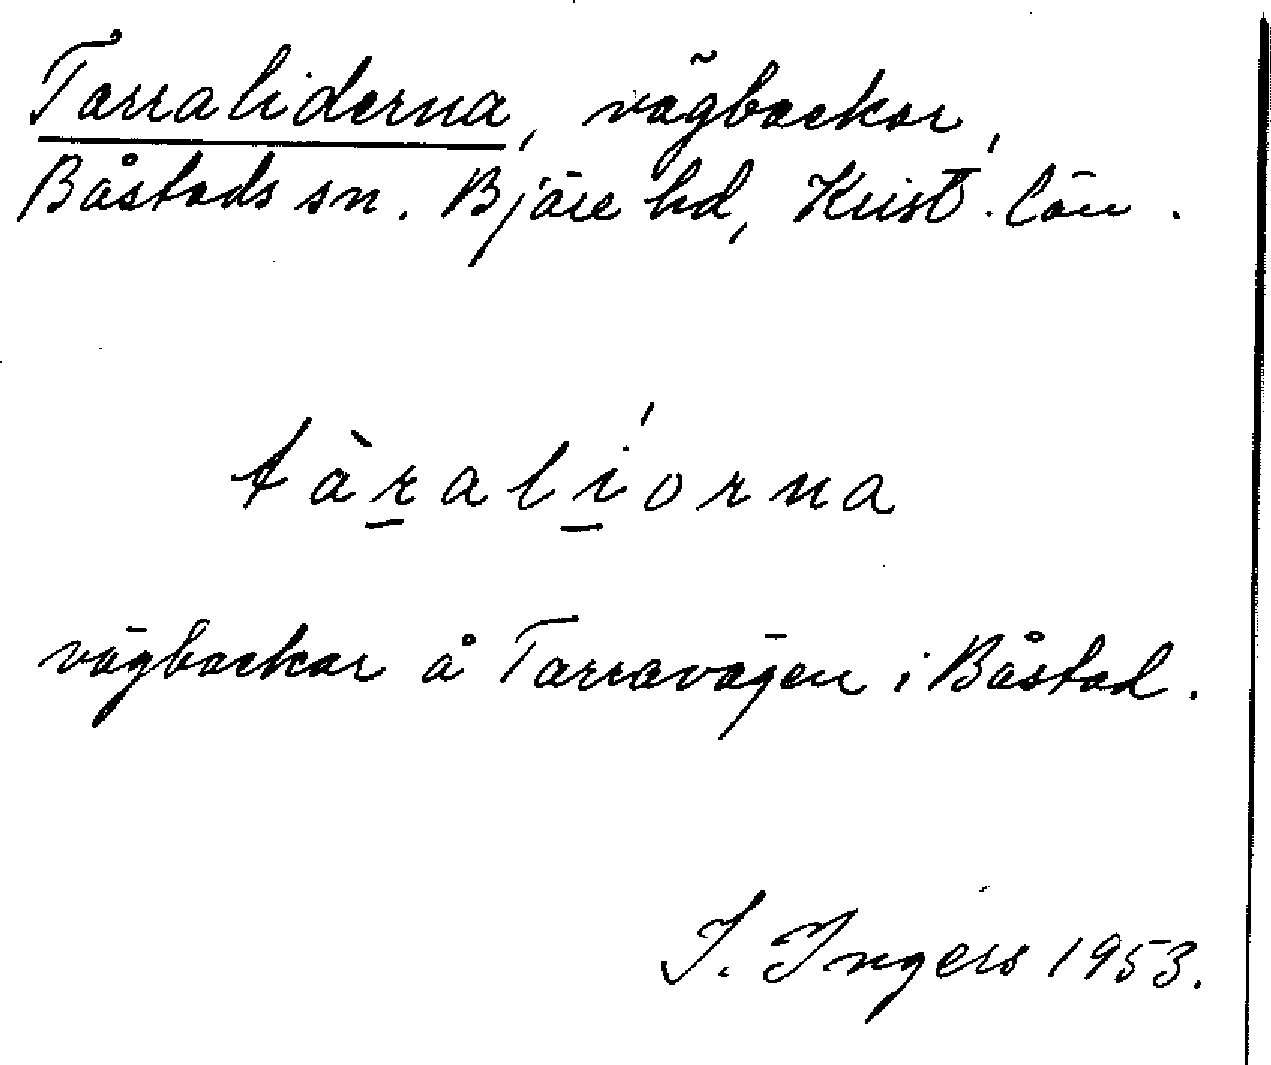 Tarraliderna, vägbackar,
Båstads sn. Bjäre hd, Krist. län.
tàr̲alí̲orna
vägbackar å Tarravägen i Båstad.
I. Ingers 1953.